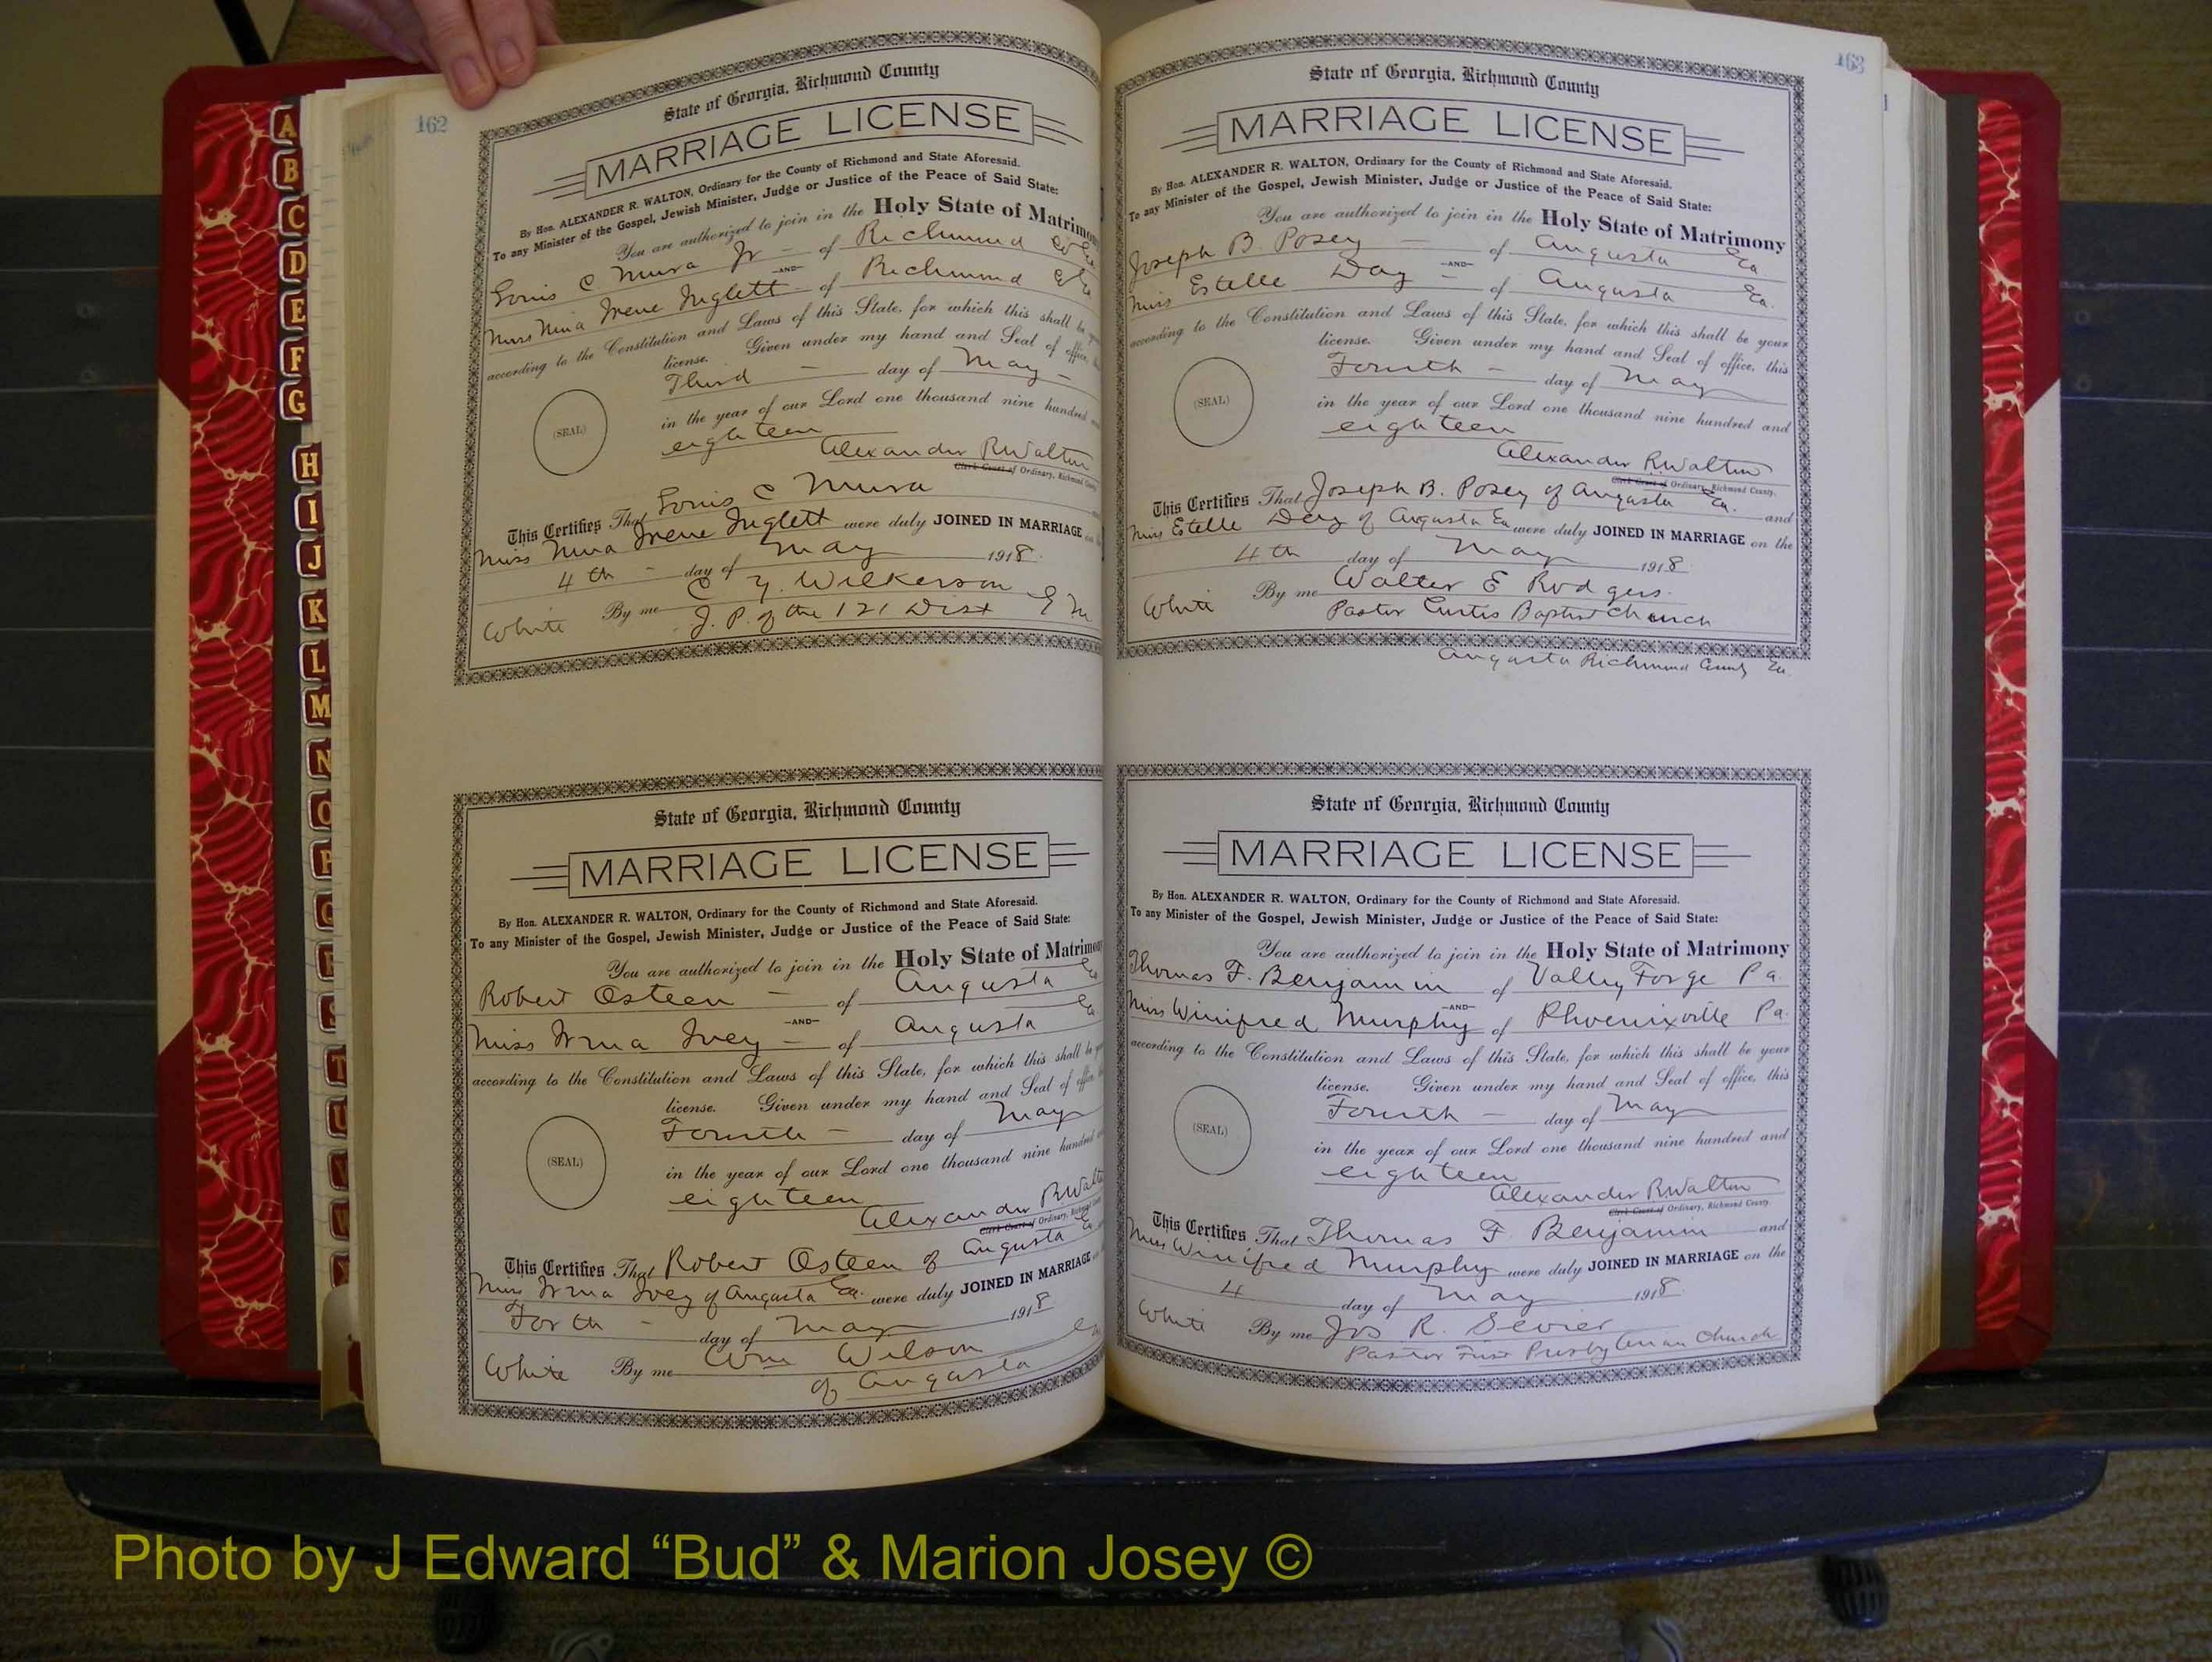 162
State of Georgia, Richmond County
MARRIAGE LICENSE
By Hon. ALEXANDER R. WALTON, Ordinary for the County of Richmond and State Aforesaid.
To any Minister of the Gospel, Jewish Minister, Judge or Justice of the Peace of Said State:
You are authorized to join in the Holy State of Matrimony
Louis C Mura Jr - of Richmond Co Ga
-AND-
Miss Nina Irene Inglett - of Richmond Co Ga
according to the Constitution and Laws of this State, for which this shall be your
license. Given under my hand and Seal of office, this
Third - day of May -
(SEAL)
in the year of our Lord one thousand nine hundred and
eighteen
Alexander R Walton
Clerk Court of Ordinary, Richmond County.
This Certifies That Louis C Mura
Miss Nina Irene Inglett were duly JOINED IN MARRIAGE on
4th - day of May 1918.
White By me C Y. Wilkerson
J. P. of the 121 Dist G M
State of Georgia, Richmond County
MARRIAGE LICENSE
By Hon. ALEXANDER R. WALTON, Ordinary for the County of Richmond and State Aforesaid.
To any Minister of the Gospel, Jewish Minister, Judge or Justice of the Peace of Said State:
You are authorized to join in the Holy State of Matrimony
Robert Osteen - of Augusta Ga
-AND-
Miss Irma Ivey - of Augusta Ga
according to the Constitution and Laws of this State, for which this shall be your
license. Given under my hand and Seal of office,
Fourth - day of May
(SEAL)
in the year of our Lord one thousand nine hundred
eighteen
Alexander R Walton
Clerk Court of Ordinary, Richmond County
This Certifies That Robert Osteen of Augusta Ga
Miss Irma Ivey of Augusta Ga. were duly JOINED IN MARRIAGE
Forth - day of May 1918
White By me Wm Wilson
of Augusta
163
State of Georgia, Richmond County
MARRIAGE LICENSE
By Hon. ALEXANDER R. WALTON, Ordinary for the County of Richmond and State Aforesaid.
To any Minister of the Gospel, Jewish Minister, Judge or Justice of the Peace of Said State:
You are authorized to join in the Holy State of Matrimony
Joseph B. Posey - of Augusta Ga
-AND-
Miss Estelle Day - of Augusta Ga.
according to the Constitution and Laws of this State, for which this shall be your
license. Given under my hand and Seal of office, this
Fourth - day of May
(SEAL)
in the year of our Lord one thousand nine hundred and
eighteen
Alexander R Walton
Clerk Court of Ordinary, Richmond County.
This Certifies That Joseph B. Posey of Augusta Ga. and
Miss Estelle Day of Augusta Ga were duly JOINED IN MARRIAGE on the
4th day of May 1918.
White By me Walter E Rodgers.
Pastor Curtis Baptist Church
Augusta Richmond County Ga.
State of Georgia, Richmond County
MARRIAGE LICENSE
By Hon. ALEXANDER R. WALTON, Ordinary for the County of Richmond and State Aforesaid.
To any Minister of the Gospel, Jewish Minister, Judge or Justice of the Peace of Said State:
You are authorized to join in the Holy State of Matrimony
Thomas F. Benjamin of Valley Forge Pa.
-AND-
Miss Winifred Murphy of Phoenixville Pa.
according to the Constitution and Laws of this State, for which this shall be your
license. Given under my hand and Seal of office, this
Fourth - day of May
(SEAL)
in the year of our Lord one thousand nine hundred and
eighteen
Alexander R Walton
Clerk Court of Ordinary, Richmond County.
This Certifies That Thomas F. Benjamin and
Miss Winifred Murphy were duly JOINED IN MARRIAGE on the
4 day of May 1918.
White By me Jos R. Sevier
Pastor First Presbyterian Church
A
B
C
D
E
F
G
H
I
J
K
L
M
N
O
P
Q
R
S
T
U
V
W
Photo by J Edward “Bud” & Marion Josey ©